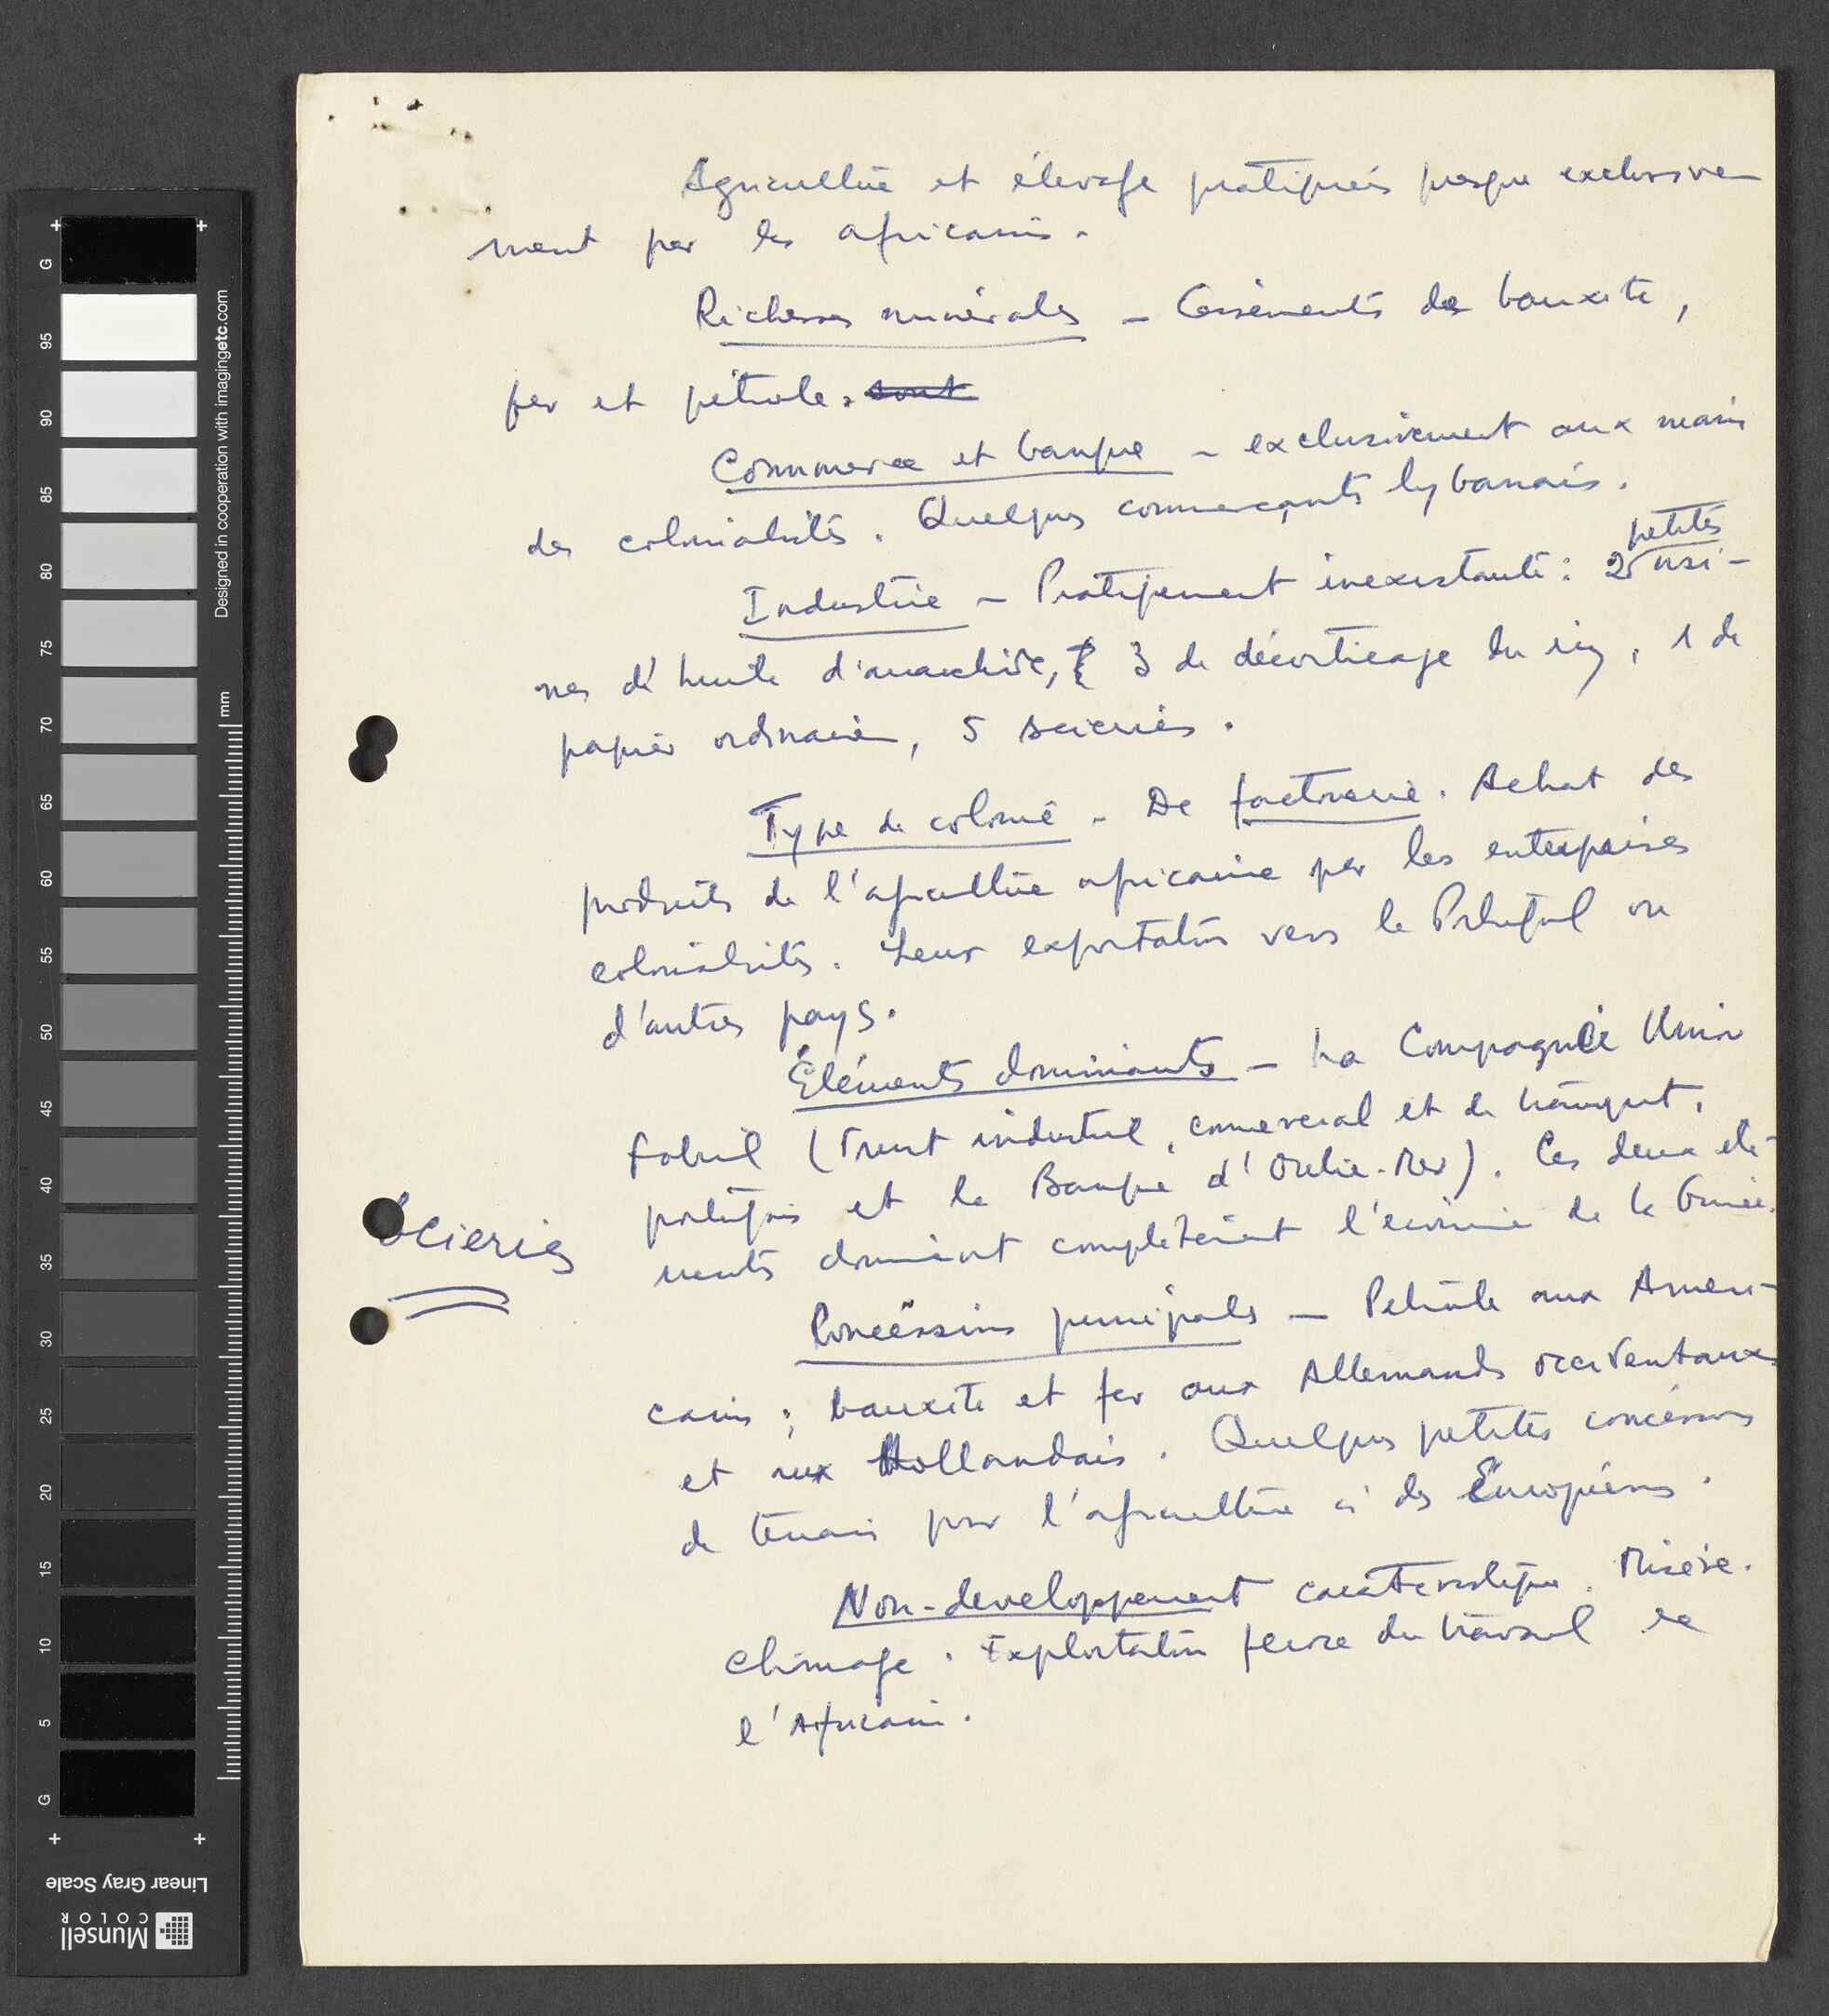 Agriculture et élevage pratiqués presque exclusive-
ment par les africains.
Richesses minérales - Gisements de bauxite,
fer et pétrole. sont
Commerce et banque - exclusivement aux mains
des colonialistes. Quelques commerçants lybanais.
petites
Industrie - Pratiquement inexistante: 2 usi-
nes d'huile d'arachide, 3 de décorticage du riz, 1 de
papier ordinaire, 5 scieries.
Type de colonie - De factorerie. Achat des
produits de l'agriculture africaine par les entreprises
colonialistes. Leur exportation vers le Portugal ou
d'autres pays.
Eléments dominants - La Compagnie União
Fabril (Trust industriel, comercial et de transport,
portugais et la Banque d'Outre-Mer). Ces deux élé-
scieries
ments dominent complètement l'économie de la Guinée.
Concéssions principales - Pétrole aux Améri-
cains; bauxite et fer aux Allemands occidentaux
et aux Hollandais. Quelques petites concéssions
de terrain pour l'agriculture à des Européens.
Non-developpement caractéristique. Misère.
Chômage. Exploitation féroce du travail de
l'Africain.
G
95
90
85
80
75
70
65
60
55
50
45
40
35
30
25
20
15
10
5
G
mm
Designed in cooperation with imagingetc.com
Linear Gray Scale
Munsell
COLOR